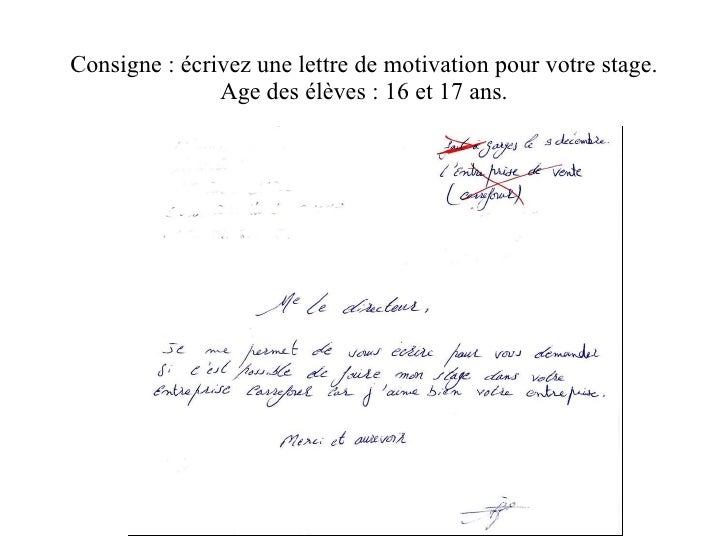 Consigne : écrivez une lettre de motivation pour votre stage.
Age des élèves : 16 et 17 ans.
fait à garges le 9 décembre.
l'Entreprise de vente
(carrefour)
Me le directeur,
Je me permet de vous écrire pour vous demander
si c'est possible de faire mon stage dans votre
Entreprise Carrefour car j'aime bien votre entreprise.
Merci et aurevoir